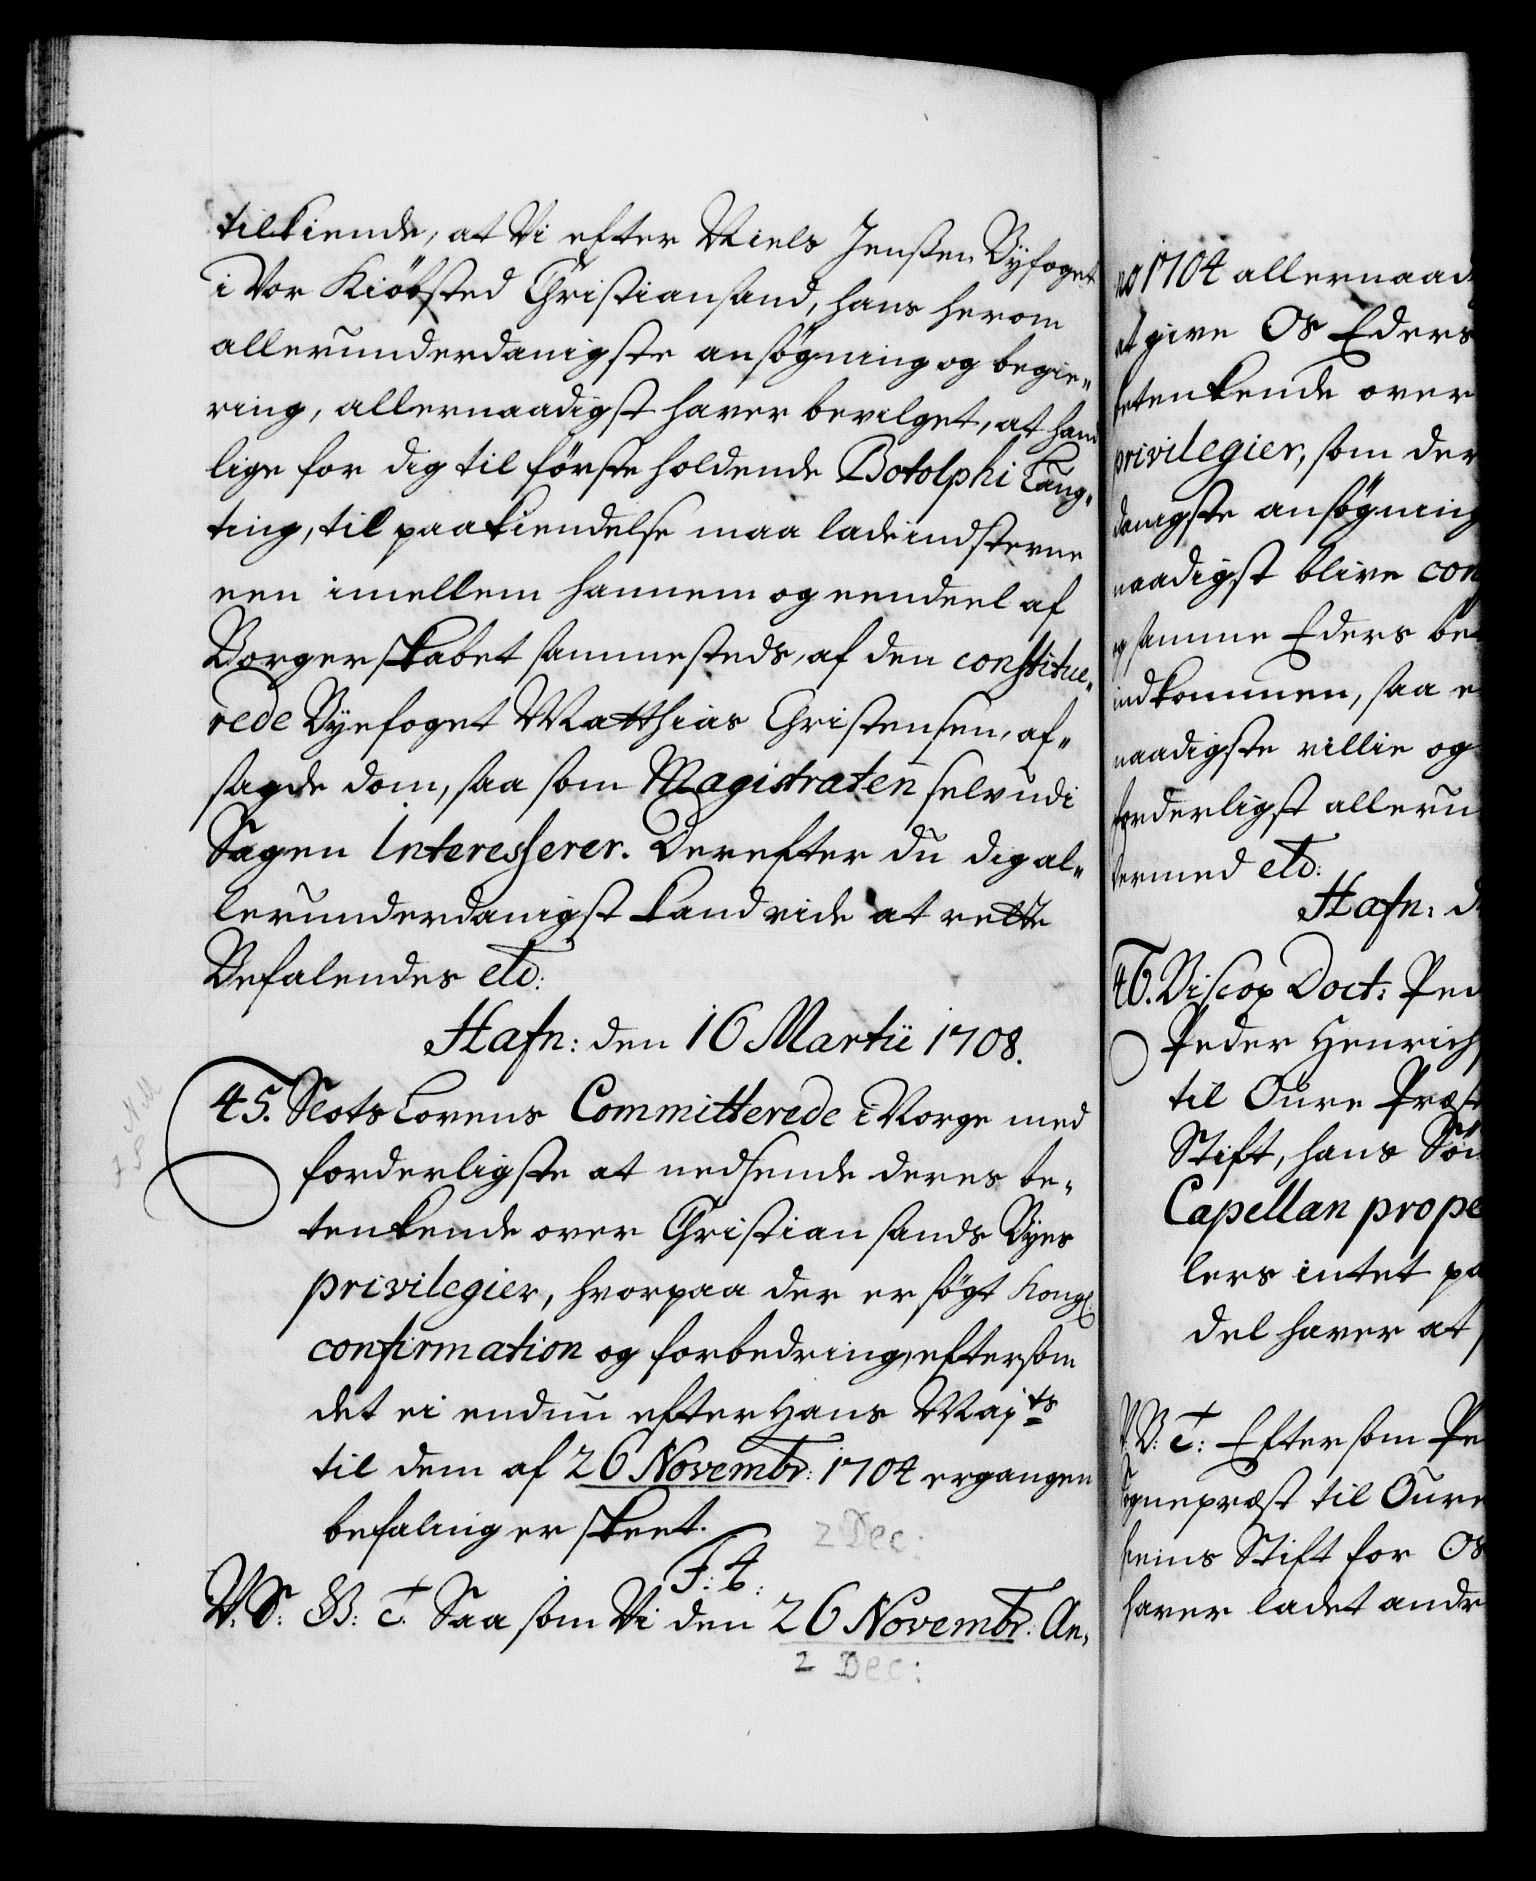 tilkiende, at Vi efter Niels Jenssen Byfoget
i Vor Kiöbsted Christiansand, hans herom
allerunderdanigste ansøgning og begie„
ring, allernaadigst haver bevilget, at hand
lige for dig til förste holdende Botolphi Laug„
ting, til paakiendelse maa lade indsterne
een imellem hannem og eendeel af
Borgerskabet sammesteds, af den constitue„
rede Byefoget Matthias Christensen, af„
sagde dom, saa som Magistraten selv udi
Sagen Interesserer. Derefter du dig al„
lerunderdanigst kand vide at rette
Befalendes etc:
Hafn: den 16 Martii 1708.
45. Slots Lovens Committerede i Norge med
forderligste at nedsende deres be„
tenkende over Christiansands Byes
privilegier, hvorpaa der er søgt Kongl:
confirmation og forbedring, eftersom
det ei endnu efter Hans Maj<sup>ts</sup>
til dem af 26 Novembr: 1704 ergangen
befaling er skeet.
2 Dec:
F: 4.
V. S: G: T. Saa som Vi den 26 Novembr: An„
2 Dec:
no 1704 allernaad
at give Os Eders
betenkende over
privilegier, som der
danigste ansøgning
naadigst blive con
og samme Eders be
indkommen, saa e
naadigste villie og
forderligst alleru
dermed etc:
Hafn: d
46. Biscop Doct: Ped
Peder Henrich
til Oure Præst
Stift, hans Sön
Capellan prope
lers intet pa
del haver at
V. G: T: Eftersom Pe
Sognepræst til Oure
hiems Stift for Os
haver ladet andr